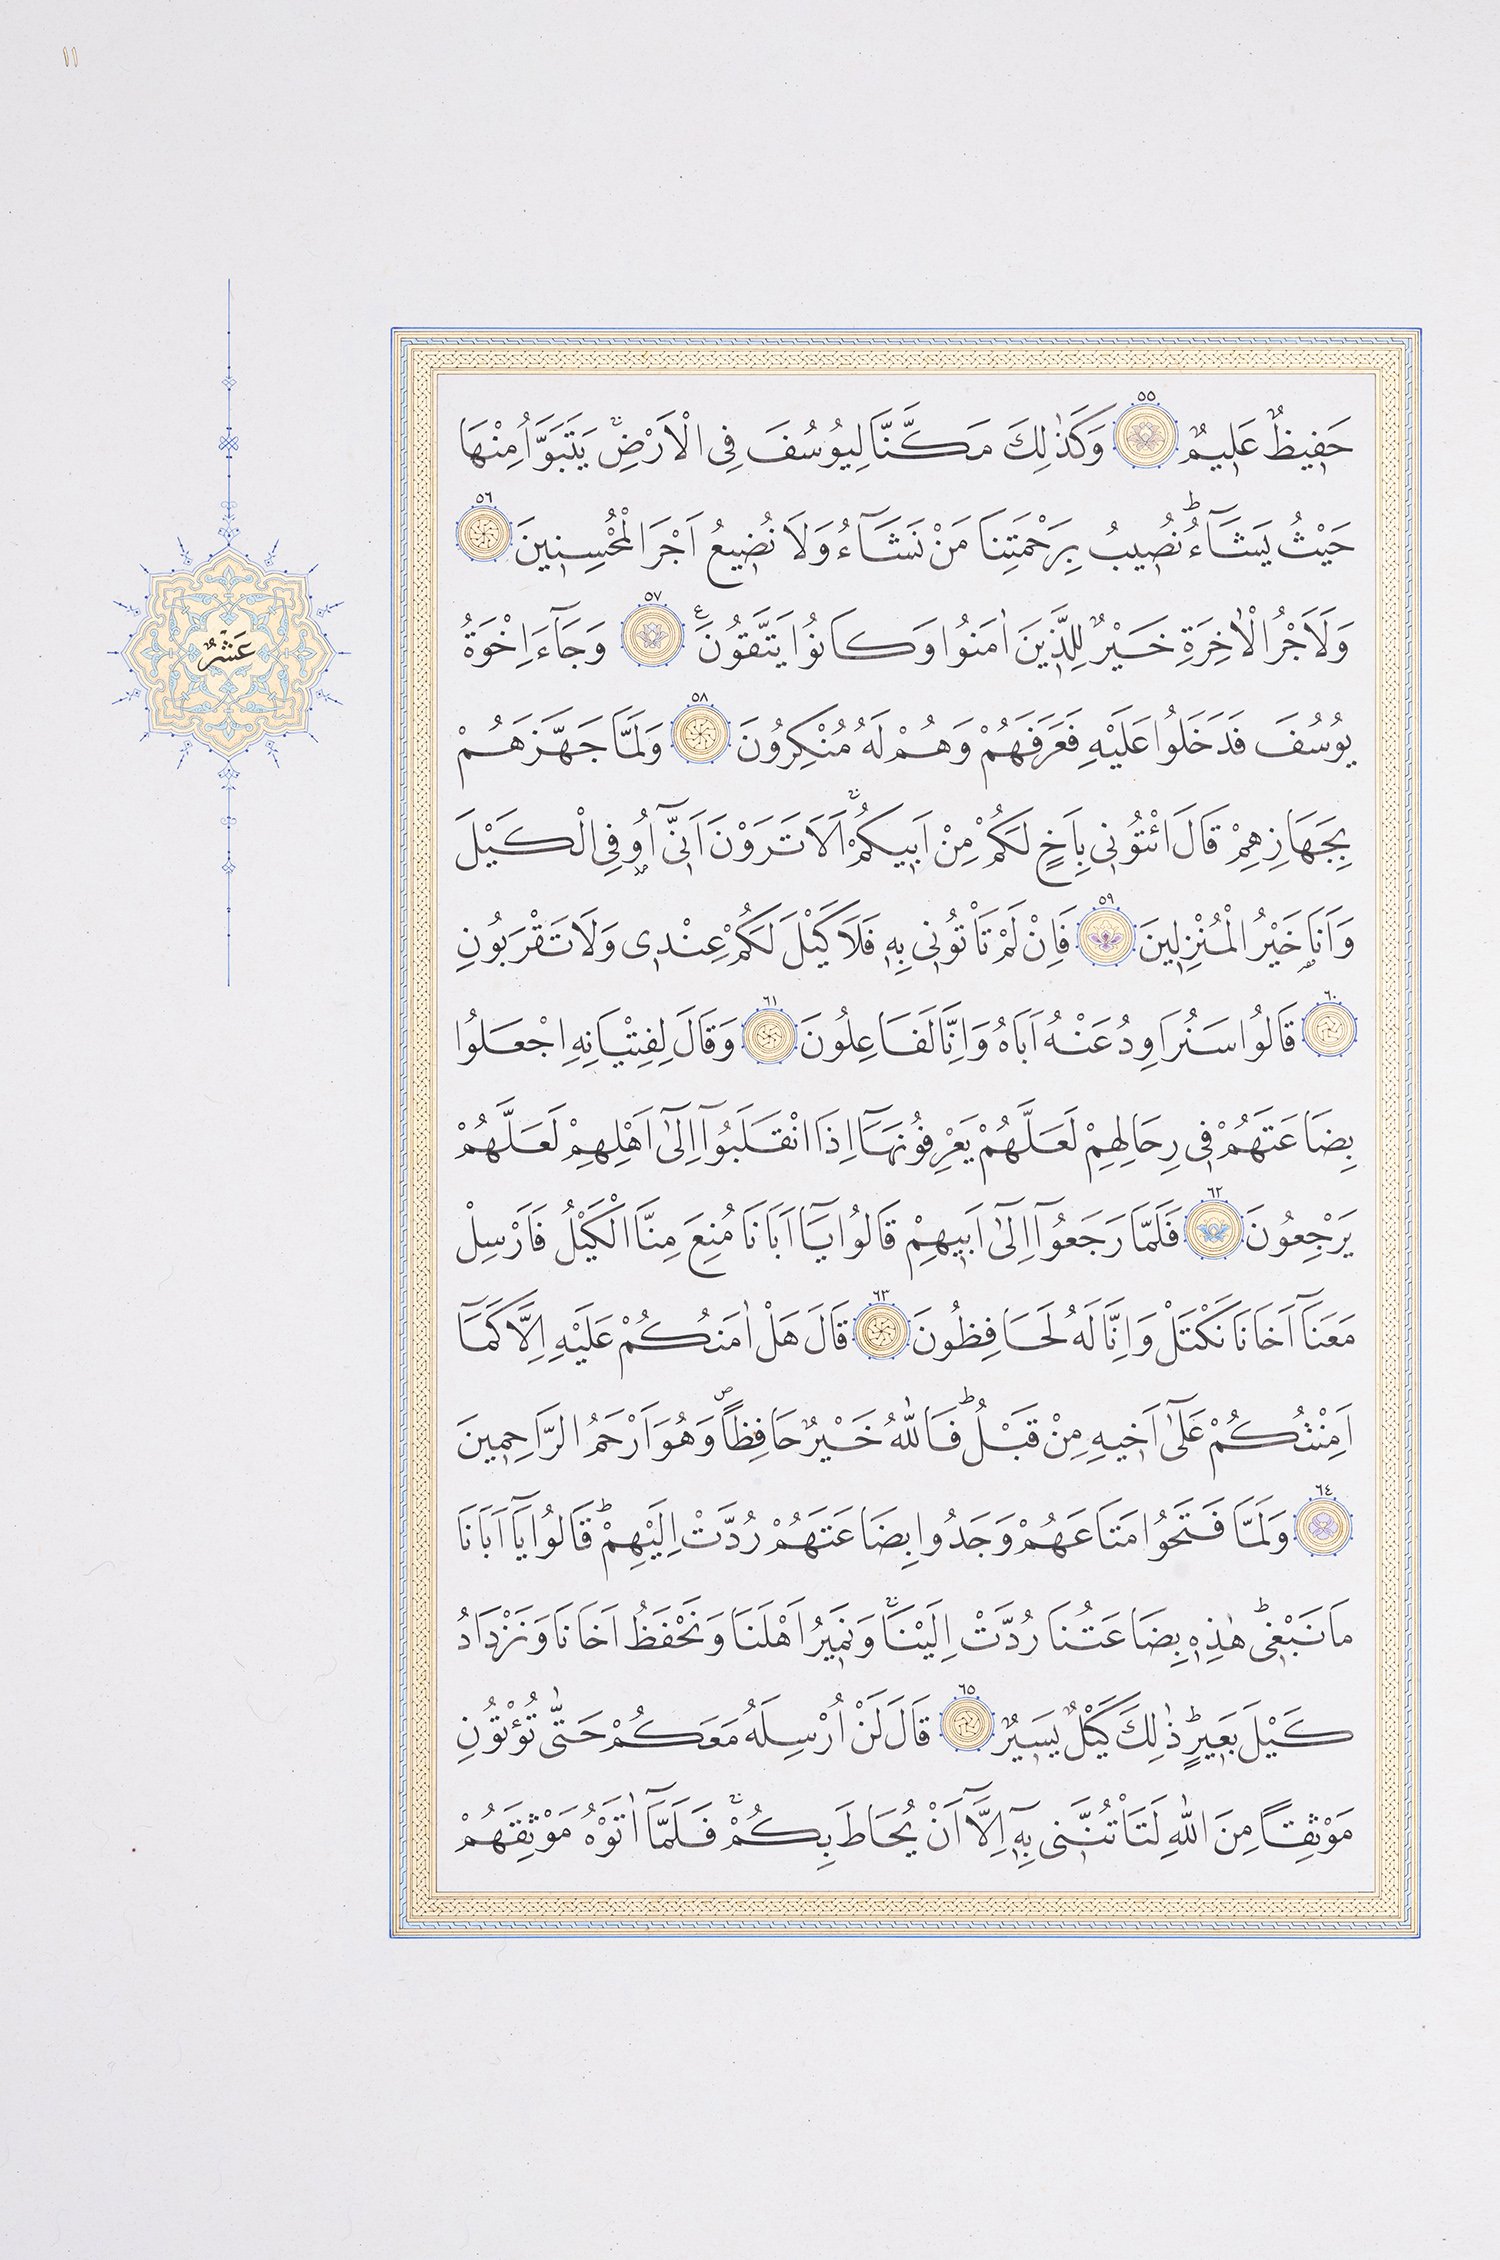 ١١
حَفٖيظٌ عَلٖيمٌ ٥٥ وَكَذٰلِكَ مَكَّنَّا لِيُوسُفَ فِى الْاَرْضِۚ يَتَبَوَّاُ مِنْهَا
حَيْثُ يَشَٓاءُؕ نُصٖيبُ بِرَحْمَتِنَا مَنْ نَشَٓاءُ وَلَا نُضٖيعُ اَجْرَ الْمُحْسِنٖينَ ٥٦
وَلَاَجْرُ الْاٰخِرَةِ خَيْرٌ لِلَّذٖينَ اٰمَنُوا وَكَانُوا يَتَّقُونَࣖ ٥٧ وَجَٓاءَ اِخْوَةُ
يُوسُفَ فَدَخَلُوا عَلَيْهِ فَعَرَفَهُمْ وَهُمْ لَهُ مُنْكِرُونَ ٥٨ وَلَمَّا جَهَّزَهُمْ
بِجَهَازِهِمْ قَالَ ائْتُونٖى بِاَخٍ لَكُمْ مِنْ اَبٖيكُمْۚ اَلَا تَرَوْنَ اَنّٖٓى اُوفِى الْكَيْلَ
وَاَنَا۬ خَيْرُ الْمُنْزِلٖينَ ٥٩ فَاِنْ لَمْ تَاْتُونٖى بِهٖ فَلَا كَيْلَ لَكُمْ عِنْدٖى وَلَا تَقْرَبُونِ
٦٠ قَالُوا سَنُرَاوِدُ عَنْهُ اَبَاهُ وَاِنَّا لَفَاعِلُونَ ٦١ وَقَالَ لِفِتْيَانِهِ اجْعَلُوا
بِضَاعَتَهُمْ فٖى رِحَالِهِمْ لَعَلَّهُمْ يَعْرِفُونَهَٓا اِذَا انْقَلَبُٓوا اِلٰٓى اَهْلِهِمْ لَعَلَّهُمْ
يَرْجِعُونَ ٦٢ فَلَمَّا رَجَعُٓوا اِلٰٓى اَبٖيهِمْ قَالُوا يَٓا اَبَانَا مُنِعَ مِنَّا الْكَيْلُ فَاَرْسِلْ
مَعَنَٓا اَخَانَا نَكْتَلْ وَاِنَّا لَهُ لَحَافِظُونَ ٦٣ قَالَ هَلْ اٰمَنُكُمْ عَلَيْهِ اِلَّا كَمَٓا
اَمِنْتُكُمْ عَلٰٓى اَخٖيهِ مِنْ قَبْلُؕ فَاللّٰهُ خَيْرٌ حَافِظاًࣕ وَهُوَ اَرْحَمُ الرَّاحِمٖينَ
٦٤ وَلَمَّا فَتَحُوا مَتَاعَهُمْ وَجَدُوا بِضَاعَتَهُمْ رُدَّتْ اِلَيْهِمْؕ قَالُوا يَٓا اَبَانَا
مَا نَبْغٖىؕ هٰذِهٖ بِضَاعَتُنَا رُدَّتْ اِلَيْنَاۚ وَنَمٖيرُ اَهْلَنَا وَنَحْفَظُ اَخَانَا وَنَزْدَادُ
كَيْلَ بَعٖيرٍؕ ذٰلِكَ كَيْلٌ يَسٖيرٌ ٦٥ قَالَ لَنْ اُرْسِلَهُ مَعَكُمْ حَتّٰى تُؤْتُونِ
مَوْثِقاً مِنَ اللّٰهِ لَتَاْتُنَّنٖى بِهٖٓ اِلَّٓا اَنْ يُحَاطَ بِكُمْۚ فَلَمَّٓا اٰتَوْهُ مَوْثِقَهُمْ
عَشْرٌ